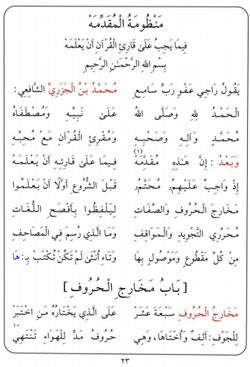 مَنْظُومَةُ الْمُقَدِّمَهْ
فِيمَا يَجِبُ عَلَىٰ قَارِئِ الْقُرْآنِ أَنْ يَعْلَمَهْ
بِسْمِ اللَّهِ الرَّحْمَٰنِ الرَّحِيمِ
يَقُولُ رَاجِي عَفْوِ رَبٍّ سَامِعِ مُحَمَّدُ بْنُ الْجَزَرِيِّ الشَّافِعِي:
الْحَمْدُ لِلَّهِ وَصَلَّى اللَّهُ عَلَىٰ نَبِيِّهِ وَمُصْطَفَاهُ
مُحَمَّدٍ وَآلِهِ وَصَحْبِهِ وَمُقْرِئِ الْقُرْآنِ مَعْ مُحِبِّهِ
وَبَعْدُ: إِنَّ هَٰذِهِ مُقَدِّمَهْ(١) فِيمَا عَلَىٰ قَارِئِهِ أَنْ يَعْلَمَهْ
إِذْ وَاجِبٌ عَلَيْهِمُ مُحَتَّمُ قَبْلَ الشُّرُوعِ أَوَّلًا أَنْ يَعْلَمُوا
مَخَارِجَ الْحُرُوفِ وَالصِّفَاتِ لِيَلْفِظُوا بِأَفْصَحِ اللُّغَاتِ
مُحَرِّرِي التَّجْوِيدِ وَالْمَوَاقِفِ وَمَا الَّذِي رُسِمَ فِي الْمَصَاحِفِ
مِنْ كُلِّ مَقْطُوعٍ وَمَوْصُولٍ بِهَا وَتَاءِ أُنْثَىٰ لَمْ تَكُنْ تُكْتَبْ بِـ: هَا
[ بَابُ مَخَارِجِ الْحُرُوفِ ]
مَخَارِجُ الْحُرُوفِ سَبْعَةَ عَشَرْ عَلَى الَّذِي يَخْتَارُهُ مَنِ اخْتَبَرْ
لِلْجَوْفِ: أَلِفٌ وَأُخْتَاهَا، وَهِي حُرُوفُ مَدٍّ لِلْهَوَاءِ تَنْتَهِي ١٠
٢٣